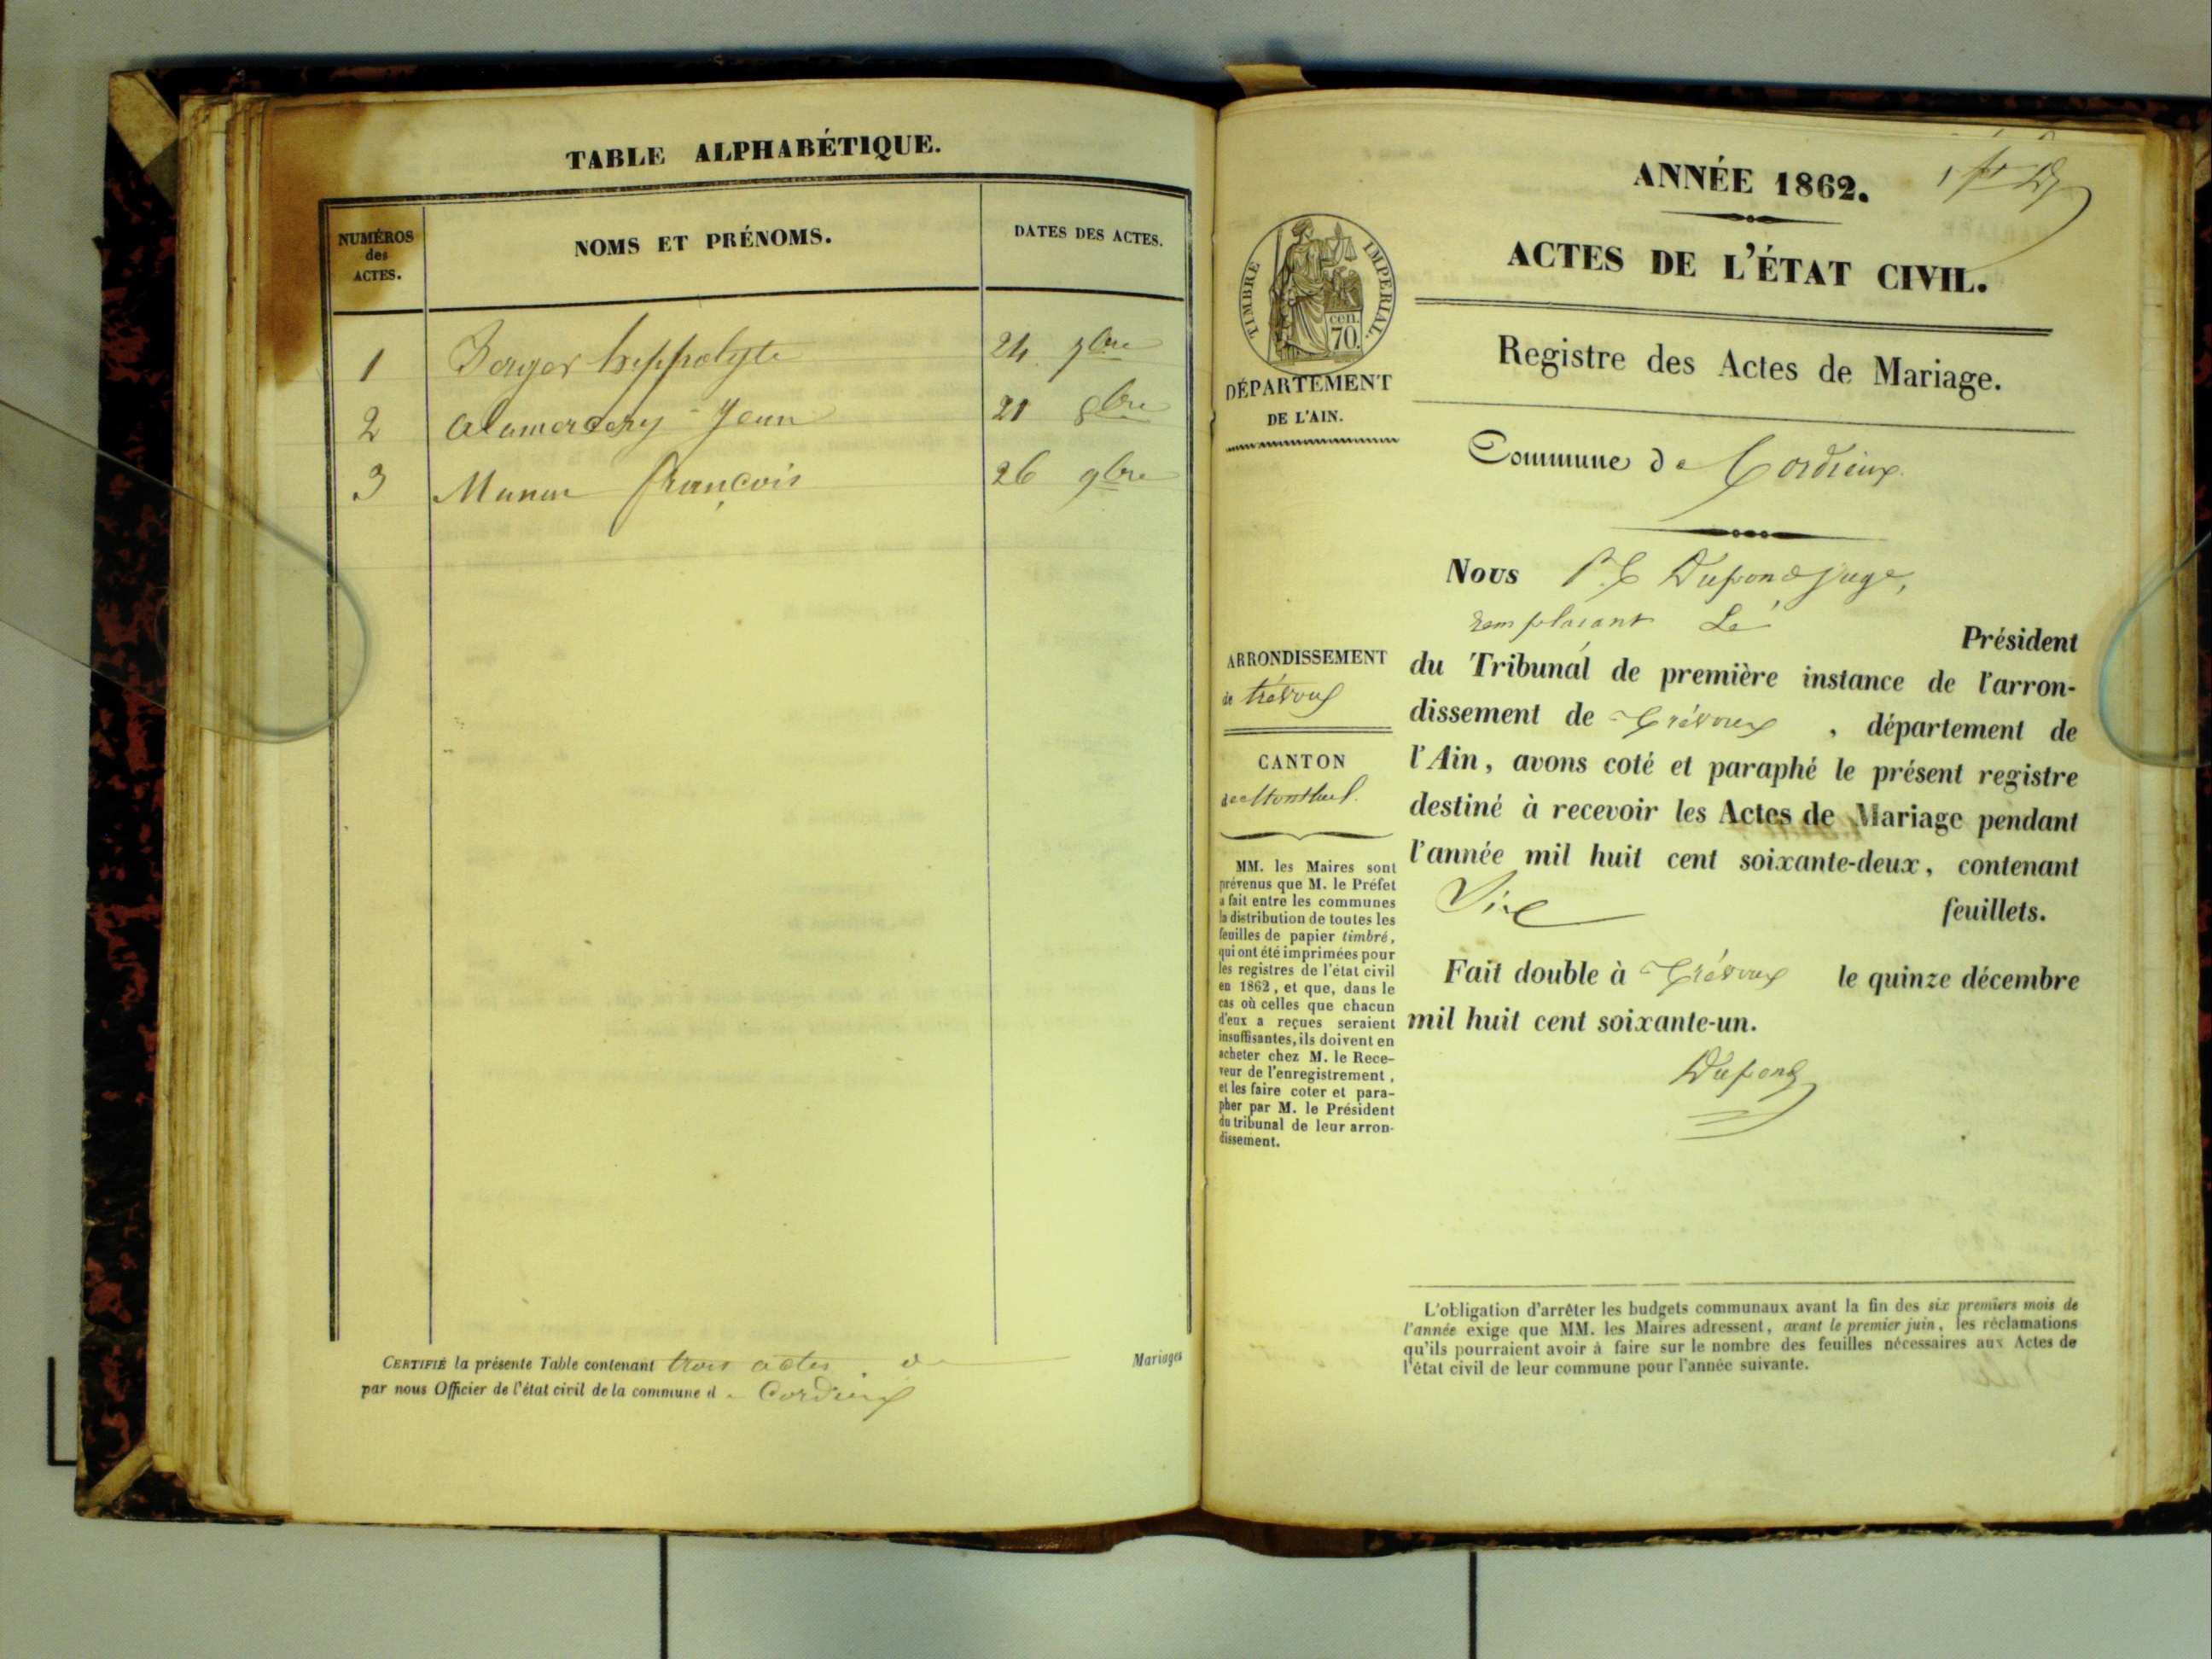 TABLE ALPHABÉTIQUE.
NUMÉROS
des
ACTES.
NOMS ET PRÉNOMS.
DATES DES ACTES.
1 Berger hippolyte 24 7bre
2 Alamercery Jean 21 8bre
3 François 26 9bre
CERTIFIÉ la présente Table contenant trois actes de Mariages
par nous Officier de l'état civil de la commune d e Cordieux
ANNÉE 1862.
ACTES DE L'ÉTAT CIVIL.
TIMBRE IMPERIAL.
cen.
70.
DÉPARTEMENT
DE L'AIN.
Registre des Actes de Mariage.
Commune de Cordieux
ARRONDISSEMENT
de trévoux
CANTON
de Montluel.
MM. les Maires sont
prévenus que M. le Préfet
a fait entre les communes
la distribution de toutes les
feuilles de papier timbré,
qui ont été imprimées pour
les registres de l'état civil
en 1862, et que, dans le
cas où celles que chacun
d'eux a reçues seraient
insuffisantes, ils doivent en
acheter chez M. le Rece-
veur de l'enregistrement,
et les faire coter et para-
pher par M. le Président
du tribunal de leur arron-
dissement.
NOUS Dupond juge,
remplaçant Le Président
du Tribunal de première instance de l'arron-
dissement de Trévoux, département de
l'Ain, avons coté et paraphé le présent registre
destiné à recevoir les Actes de Mariage pendant
l'année mil huit cent soixante-deux, contenant
Six feuillets.
Fait double à Trévoux le quinze décembre
mil huit cent soixante-un.
Dupond
L'obligation d'arrêter les budgets communaux avant la fin des six premiers mois de
l'année exige que MM. les Maires adressent, avant le premier juin, les réclamations
qu'ils pourraient avoir à faire sur le nombre des feuilles nécessaires aux Actes de
l'état civil de leur commune pour l'année suivante.